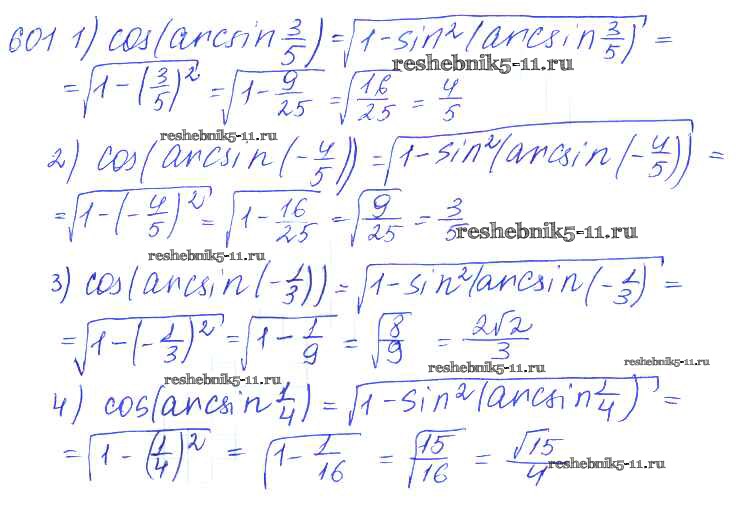 601 1) cos(arcsin 3/5) = √(1-sin²(arcsin 3/5)) =
reshebnik5-11.ru
= √(1-(3/5)²) = √(1-9/25) = √(16/25) = 4/5
reshebnik5-11.ru
2) cos(arcsin(-4/5)) = √(1-sin²(arcsin(-4/5))) =
= √(1-(-4/5)²) = √(1-16/25) = √(9/25) = 3/5
reshebnik5-11.ru
reshebnik5-11.ru
3) cos(arcsin(-1/3)) = √(1-sin²(arcsin(-1/3)) =
= √(1-(-1/3)²) = √(1-1/9) = √(8/9) = 2√2/3
reshebnik5-11.ru
reshebnik5-11.ru
reshebnik5-11.ru
4) cos(arcsin 1/4) = √(1-sin²(arcsin 1/4)) =
= √(1-(1/4)²) = √(1-1/16) = √(15/16) = √15/4
reshebnik5-11.ru